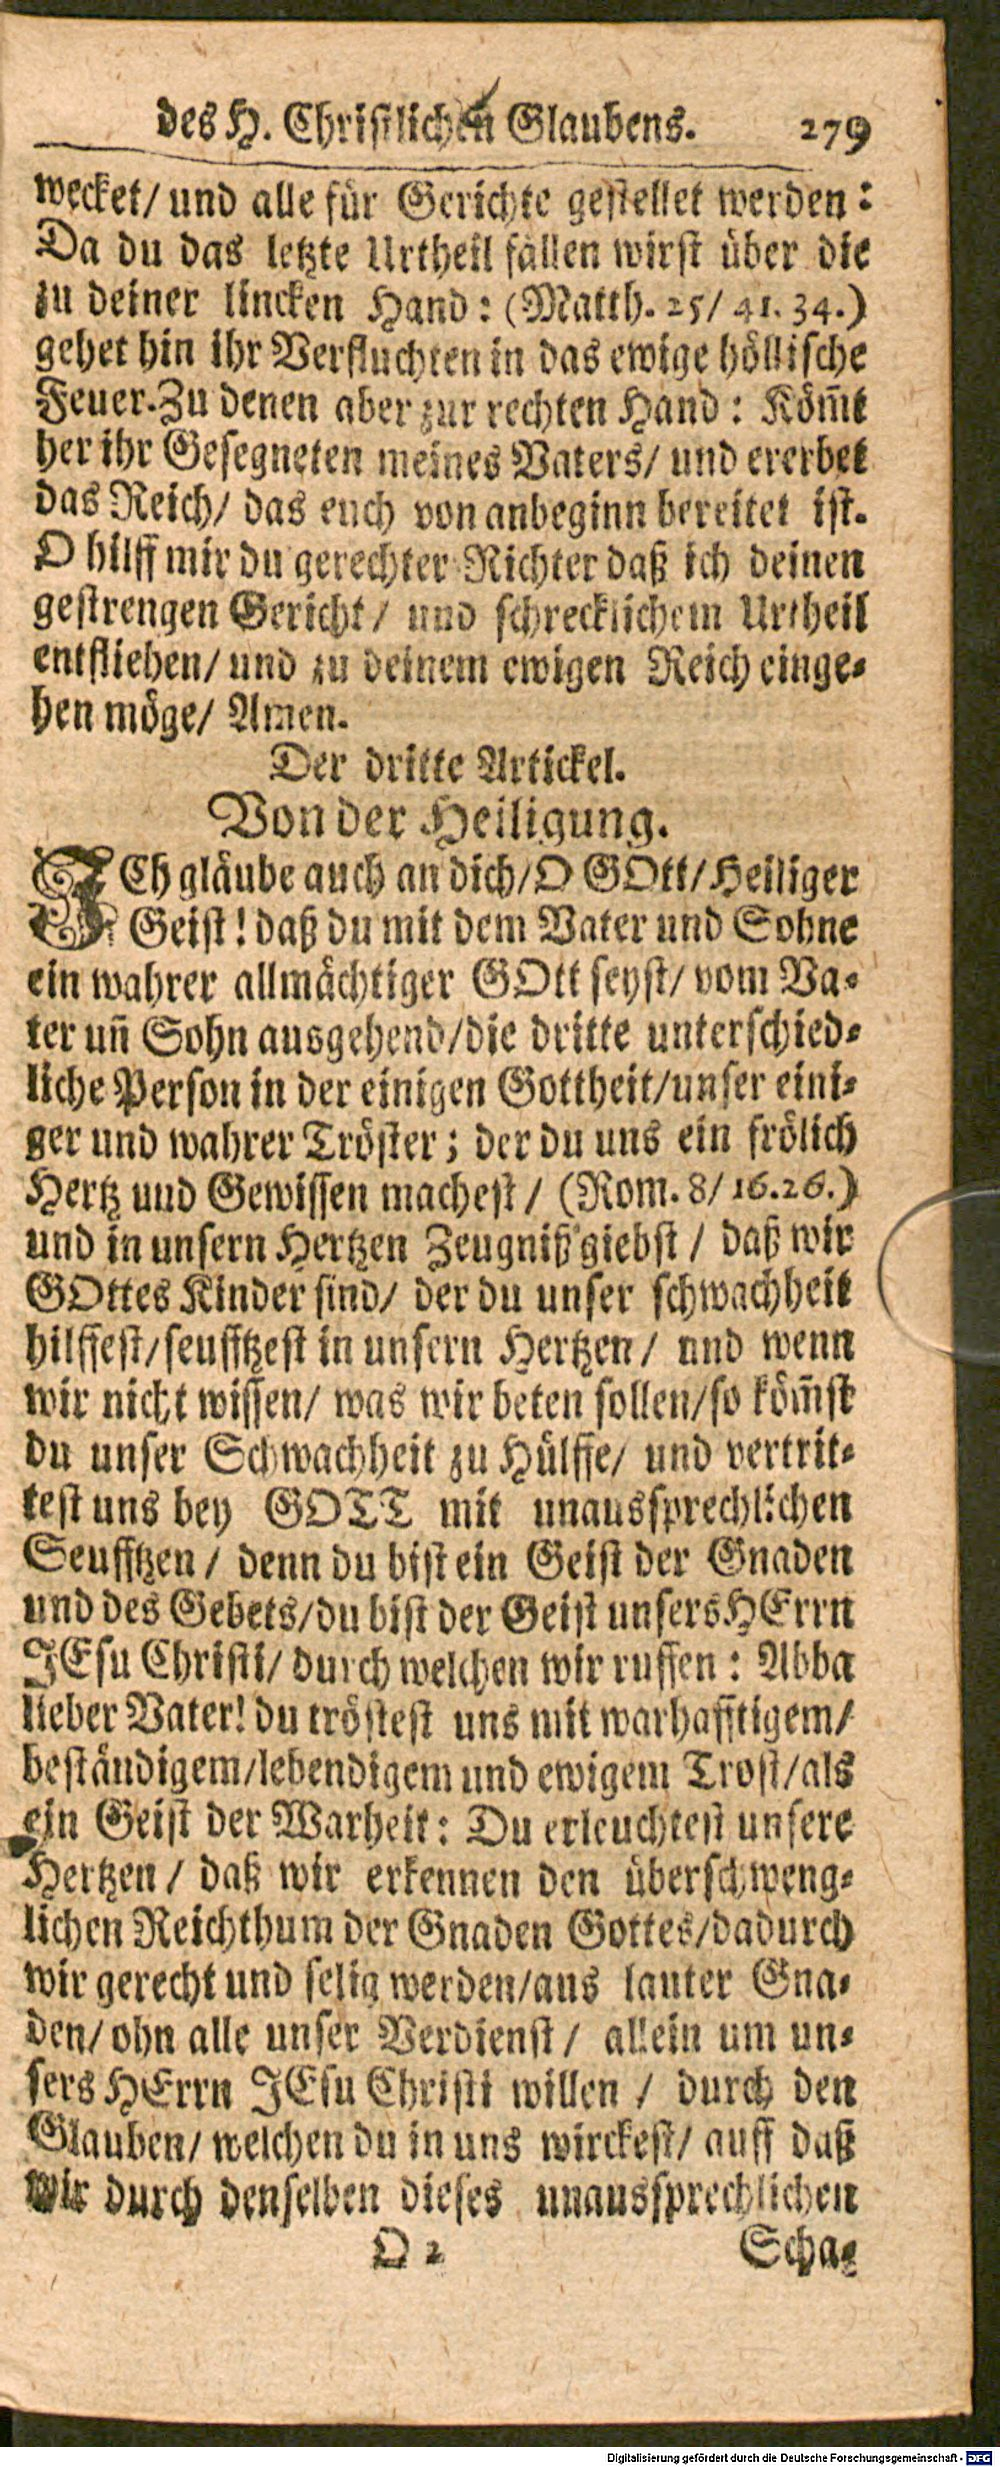 des H. Christlichen Glaubens. 279
wecket/ und alle für Gerichte gestellet werden:
Da du das letzte Urtheil fällen wirst über die
zu deiner lincken Hand: (Matth. 25/ 41. 34.)
gehet hin ihr Verfluchten in das ewige höllische
Feuer. Zu denen aber zur rechten Hand: Köm̃t
her ihr Gesegneten meines Vaters/ und ererbet
das Reich/ das euch von anbeginn bereitet ist.
O hilff mir du gerechter Richter daß ich deinen
gestrengen Gericht/ und schrecklichem Urtheil
entfliehen/ und zu deinem ewigen Reich einge-
hen möge/ Amen.
Der dritte Artickel.
Von der Heiligung.
ICh gläube auch an dich/ O GOtt/ Heiliger
Geist! daß du mit dem Vater und Sohne
ein wahrer allmächtiger GOtt seyst/ vom Va-
ter uñ Sohn ausgehend/ die dritte unterschied-
liche Person in der einigen Gottheit/ unser eini-
ger und wahrer Tröster; der du uns ein frölich
Hertz und Gewissen machest/ (Rom. 8/ 16. 26.)
und in unsern Hertzen Zeugniß giebst/ daß wir
GOttes Kinder sind/ der du unser schwachheit
hilffest/ seufftzest in unsern Hertzen/ und wenn
wir nicht wissen/ was wir beten sollen/ so köm̃st
du unser Schwachheit zu Hülffe/ und vertrit-
test uns bey GOTT mit unaussprechlichen
Seufftzen/ denn du bist ein Geist der Gnaden
und des Gebets/ du bist der Geist unsers HErrn
JEsu Christi/ durch welchen wir ruffen: Abba
lieber Vater! du tröstest uns mit warhafftigem/
beständigem/ lebendigem und ewigem Trost/ als
ein Geist der Warheit: Du erleuchtest unsere
Hertzen/ daß wir erkennen den überschweng-
lichen Reichthum der Gnaden Gottes/ dadurch
wir gerecht und selig werden/ aus lauter Gna-
den/ ohn alle unser Verdienst/ allein um un-
sers HErrn JEsu Christi willen/ durch den
Glauben/ welchen du in uns wirckest/ auff daß
wir durch denselben dieses unaussprechlichen
O 2 Scha-
Digitalisierung gefördert durch die Deutsche Forschungsgemeinschaft - DFG